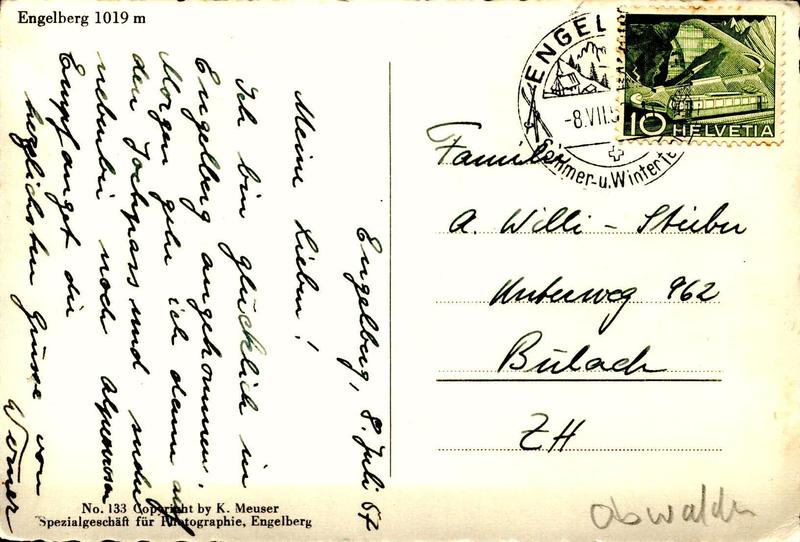 Engelberg 1019 m
Engelberg, 8. Juli 57
Meine Lieben!
Ich bin glücklich in
Engelberg angekommen.
Morgen gehe ich dann auf
den Jochpass und suche
nebenbei noch Alpenrosen
Empfanget die
herzlichsten Grüsse von
Werner
No. 133 Copyright by K. Meuser
Spezialgeschäft für Photographie, Engelberg
ENGEL
-8.VII.5
Sommer-u.Winter
10 HELVETIA
Familie
A. Willi - Stieber
Unterweg 962
Bülach
ZH
Obwalden